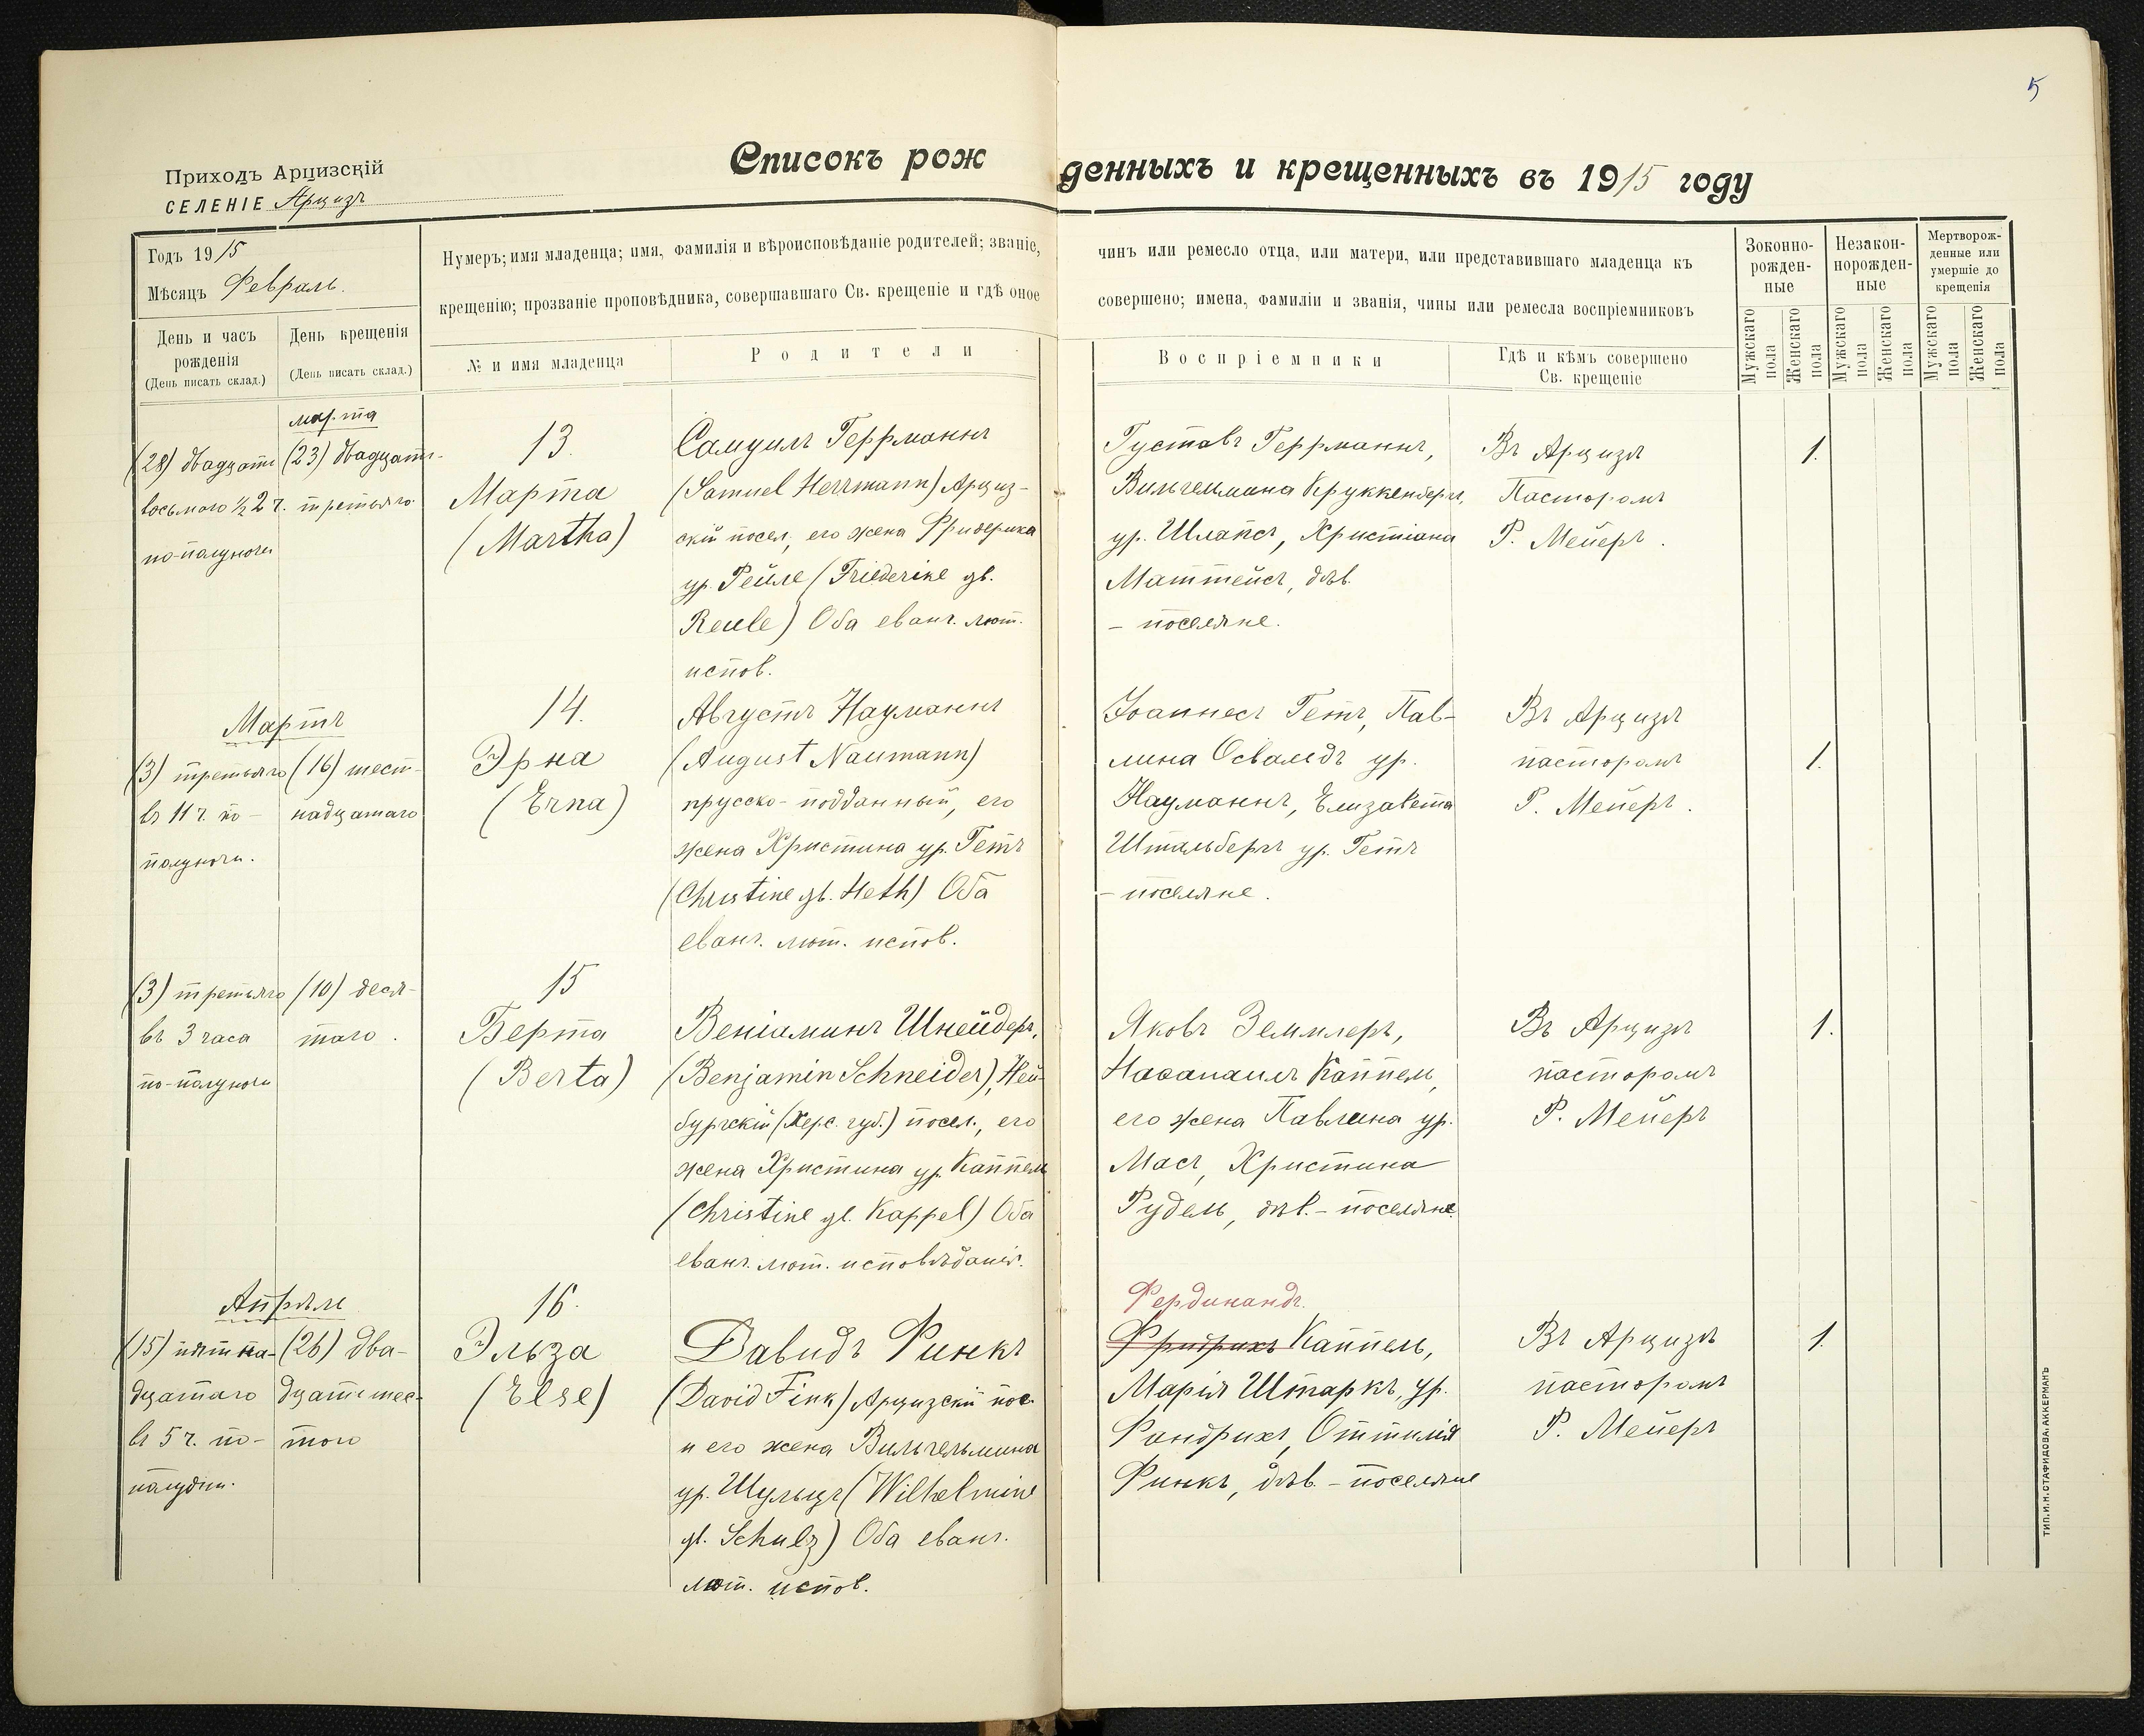 5
Приходъ Арцизскій
СЕЛЕНІЕ Арцизъ
Списокъ рожденныхъ и крещенныхъ въ 1915 году
Годъ 1915
Мѣсяцъ Февраль.
Нумеръ; имя младенца; имя, фамилія и вѣроисповѣданіе родителей; званіе, чинъ или ремесло отца, или матери, или представившаго младенца къ
крещенію; прозваніе проповѣдника, совершавшаго Св. крещеніе и гдѣ оное совершено; имена, фамиліи и званія, чины или ремесла воспріемниковъ
День и часъ
рожденія
(День писать склад.)
День крещенія
(День писать склад.)
№ и имя младенца
Родители
Воспріемники
Гдѣ и кѣмъ совершено
Св. крещеніе
Зоконно-
рожден-
ные
Незакон-
норожден-
ные
Мертворож-
денные или
умершіе до
крещенія
Мужскаго
пола
Женскаго
пола
Мужскаго
пола
Женскаго
пола
Мужскаго
пола
Женскаго
пола
(28) двадцать
восьмого ½ 2 ч.
по-полуночи
марта
(23) двадцать-
третьяго
13.
Марта
(Martha)
Самуилъ Геррманнъ
(Samuel Herrmann) Арциз-
скій посел., его жена Фридерика
ур. Рейле (Friederike gb.
Reule) Оба еванг. лют.
испов.
Густавъ Геррманнъ,
Вильгельмина Круккенбергъ,
ур. Шлапсъ, Христіана
Маттейсъ, дѣв.
- поселяне.
Въ Арцизѣ
Пасторомъ
Р. Мейеръ.
1.
Мартъ
(3) третьяго
въ 11 ч. по-
полуночи.
(16) шест-
надцатаго
14.
Эрна
(Erna)
Августъ Науманнъ
(August Naumann)
прусско-подданный, его
жена Христина ур. Гетъ
(Christine gb. Heth) Оба
еванг. лют. испов.
Іоаннесъ Гетъ, Пав-
лина Освальдъ ур.
Науманнъ, Елизавета
Штальбергъ ур. Гетъ
- поселяне.
Въ Арцизѣ
пасторомъ
Р. Мейеръ.
1.
(3) третьяго
въ 3 часа
по-полуночи
(10) деся-
таго.
15
Берта
(Berta)
Веніаминъ Шнейдеръ,
(Benjamin Schneider), Ней-
бургскій (Херс. губ.) посел., его
жена Христина ур. Каппель
(Christine gb. Kappel) Оба
еванг. лют. исповѣданія.
Яковъ Земмлеръ,
Наѳанаилъ Каппель,
его жена Павлина ур.
Мосъ, Христина
Рудель, дѣв. - поселяне.
Въ Арцизѣ
пасторомъ
Р. Мейеръ
1.
Апрѣль
(15) пятна-
дцатаго
въ 5 ч. по-
полудни.
(26) два-
дцать шес-
того
16.
Эльза
(Else)
Давидъ Финкъ
(David Fink) Арцизскій пос.
и его жена Вильгельмина
ур. Шульцъ (Wilhelmine
gb. Schulz) Оба еванг.
лют. испов.
Фердинандъ.
Фридрихъ Каппель,
Марія Штаркъ, ур.
Фандрихъ, Оттилія
Финкъ, дѣв. - поселяне
Въ Арцизѣ
пасторомъ
Р. Мейеръ
1.
ТИП. И. Н. СТАФИДОВА, АККЕРМАНЪ